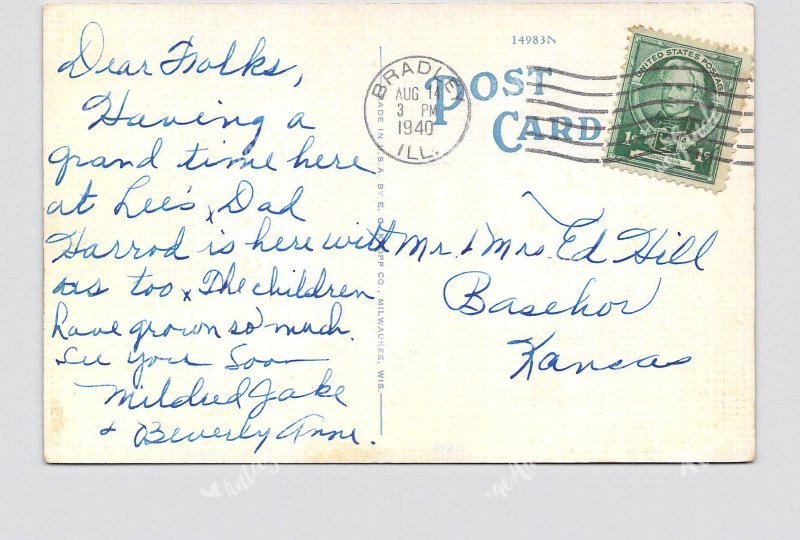 Dear Folks,
Having a
grand time here
at Lee's x Dad
Harrod is here with
us too x The children
have grown so much.
See you soon
Mildred Jake
+ Beverly Anne.
14983N
POST
CARD
BRADLEY
AUG 14
3 PM
1940
ILL.
UNITED STATES POSTAGE
1¢ 1¢
MADE IN U.S.A. BY E. C. KROPP CO., MILWAUKEE, WIS.
Mr. & Mrs. Ed Hill
Basehor
Kansas